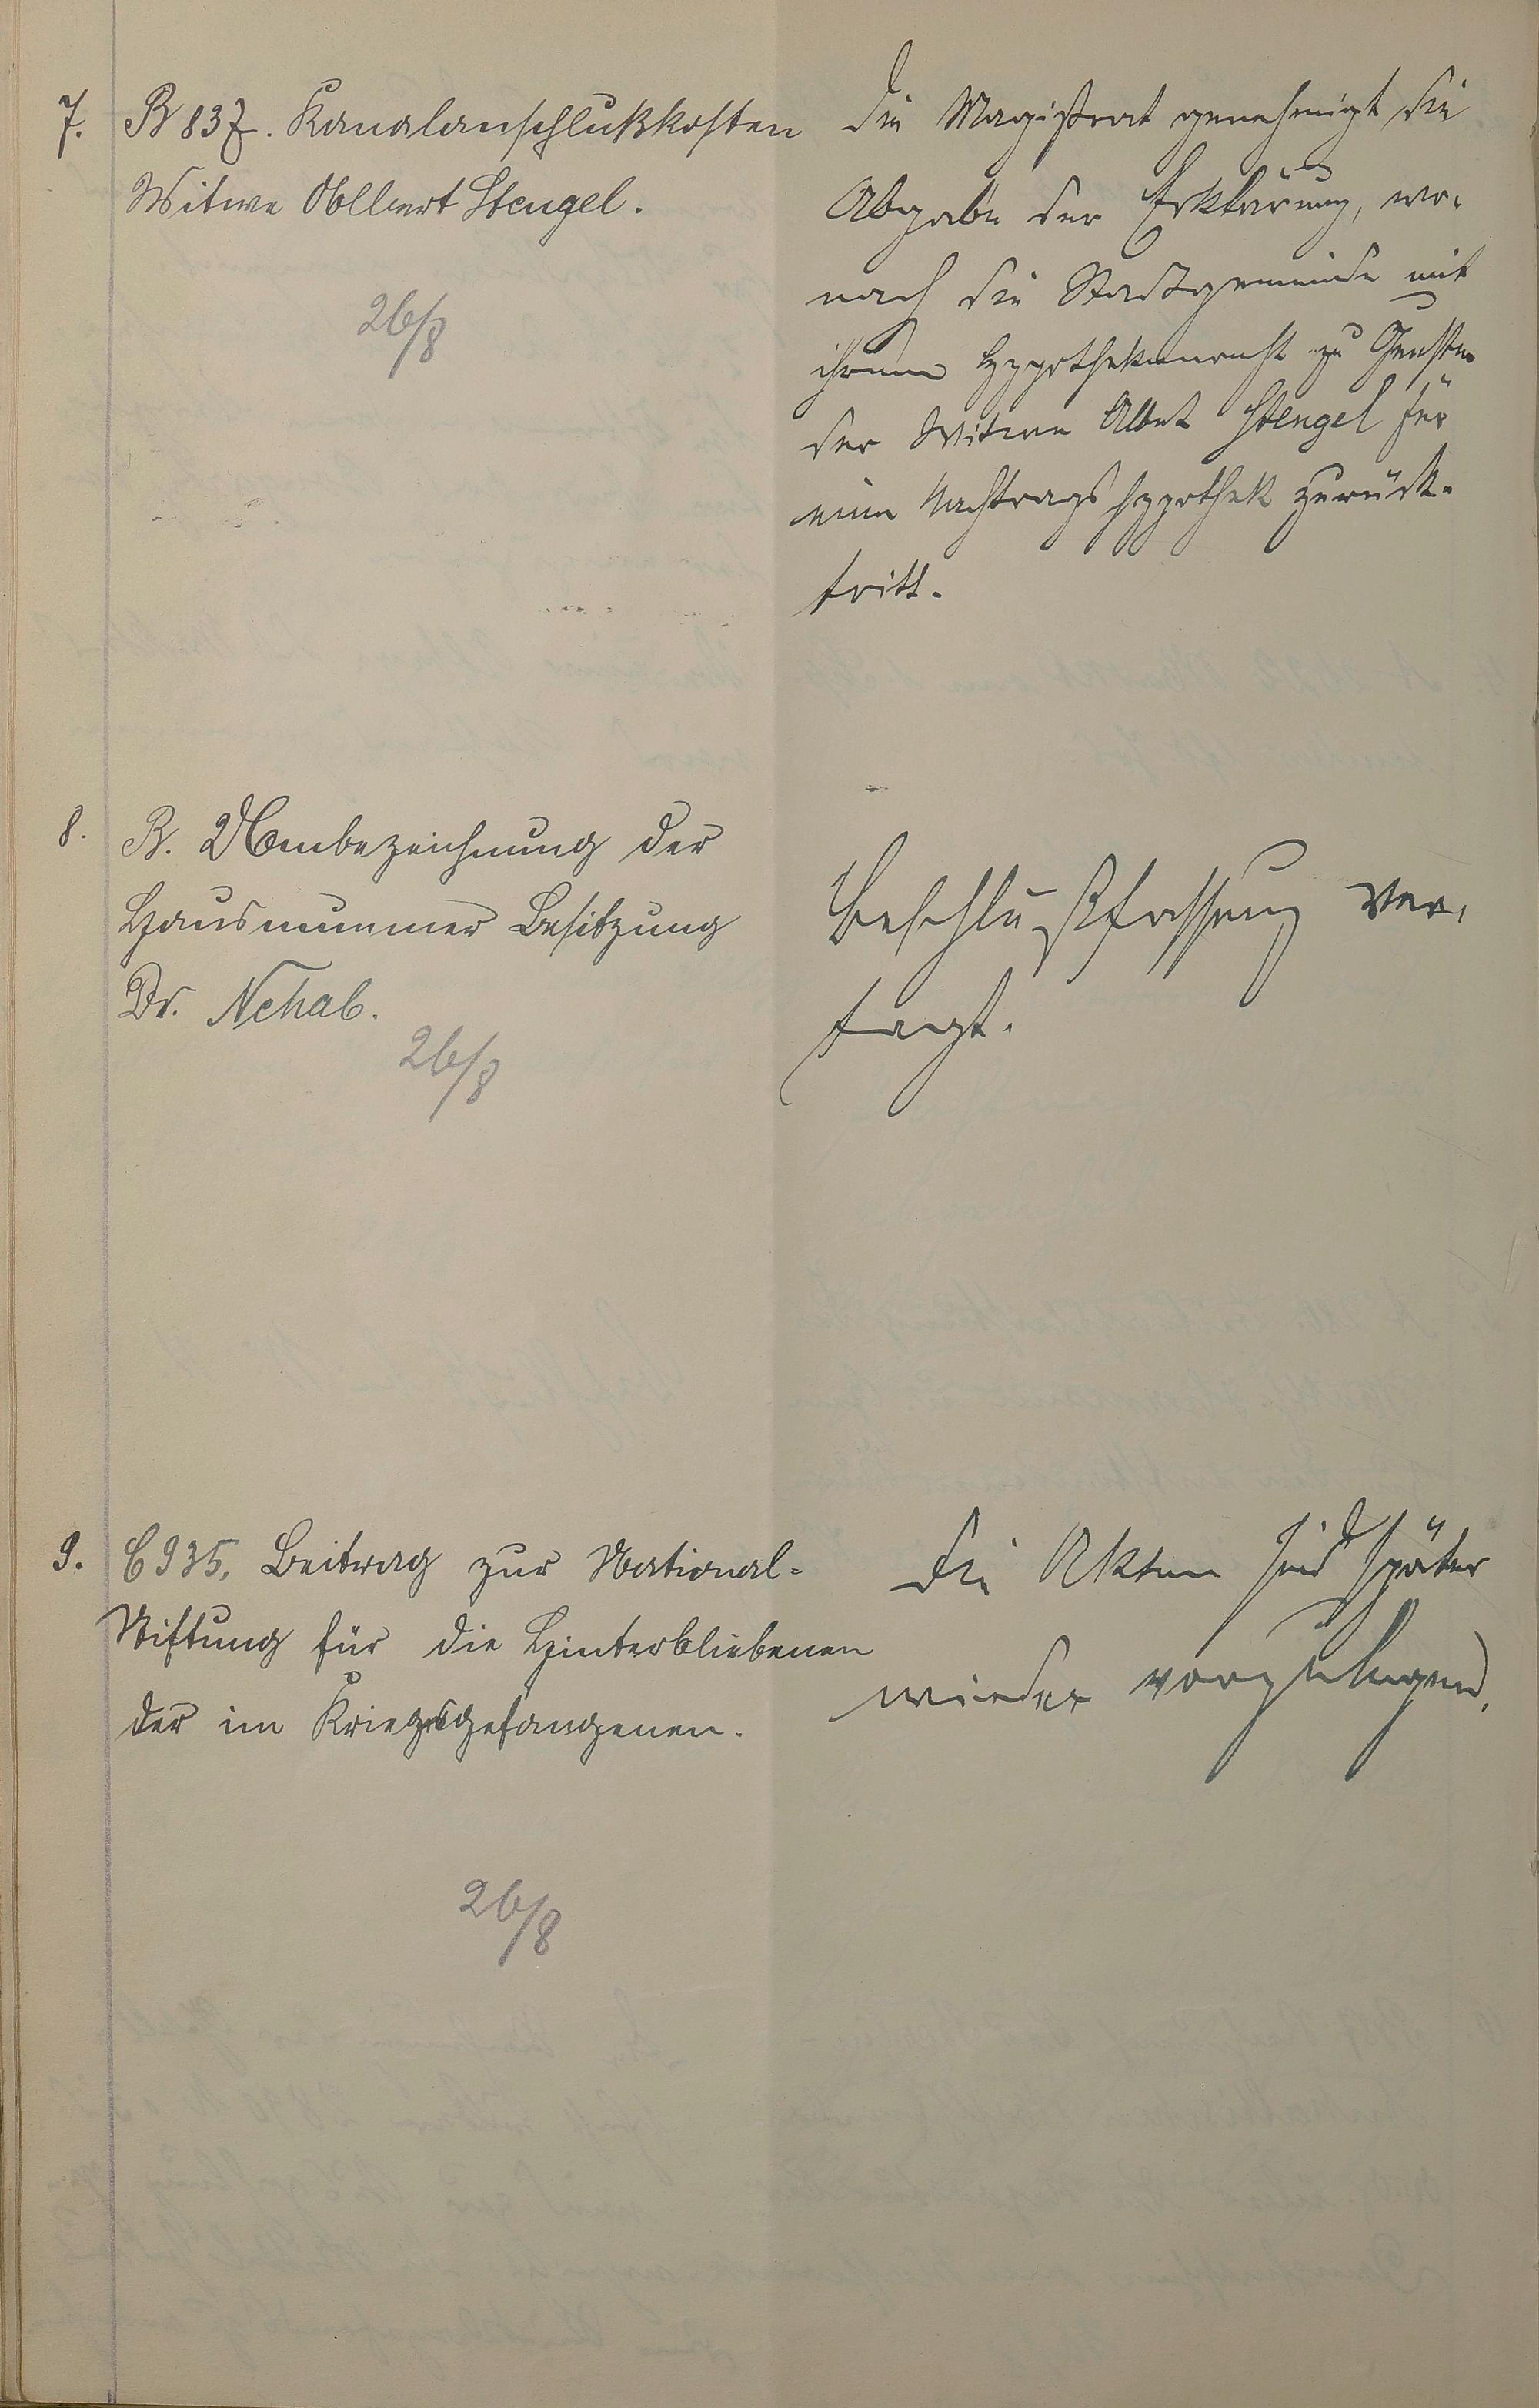 7. B 837. Kanalanschlußkosten
Witwe Albert Stengel.
26/8
Die Magistrat genehmigt die
Abgabe der Erklärung, wo-
nach die Stadtgemeinde mit
ihrem Hypothekenrecht zu Gunsten
der Witwe Albert Stengel für
eine Nachtragshypothek zurück-
tritt.
8. B. Umbezeichnung der
Hausnummer Besitzung
Dr. Nehab.
26/8
Beschlußfassung ver-
tagt.
9. C 935. Beitrag zur National-
Stiftung für die Hinterbliebenen
der im Kriegsgefangenen.
26/8
Die Akten sind später
wieder vorzulegen.